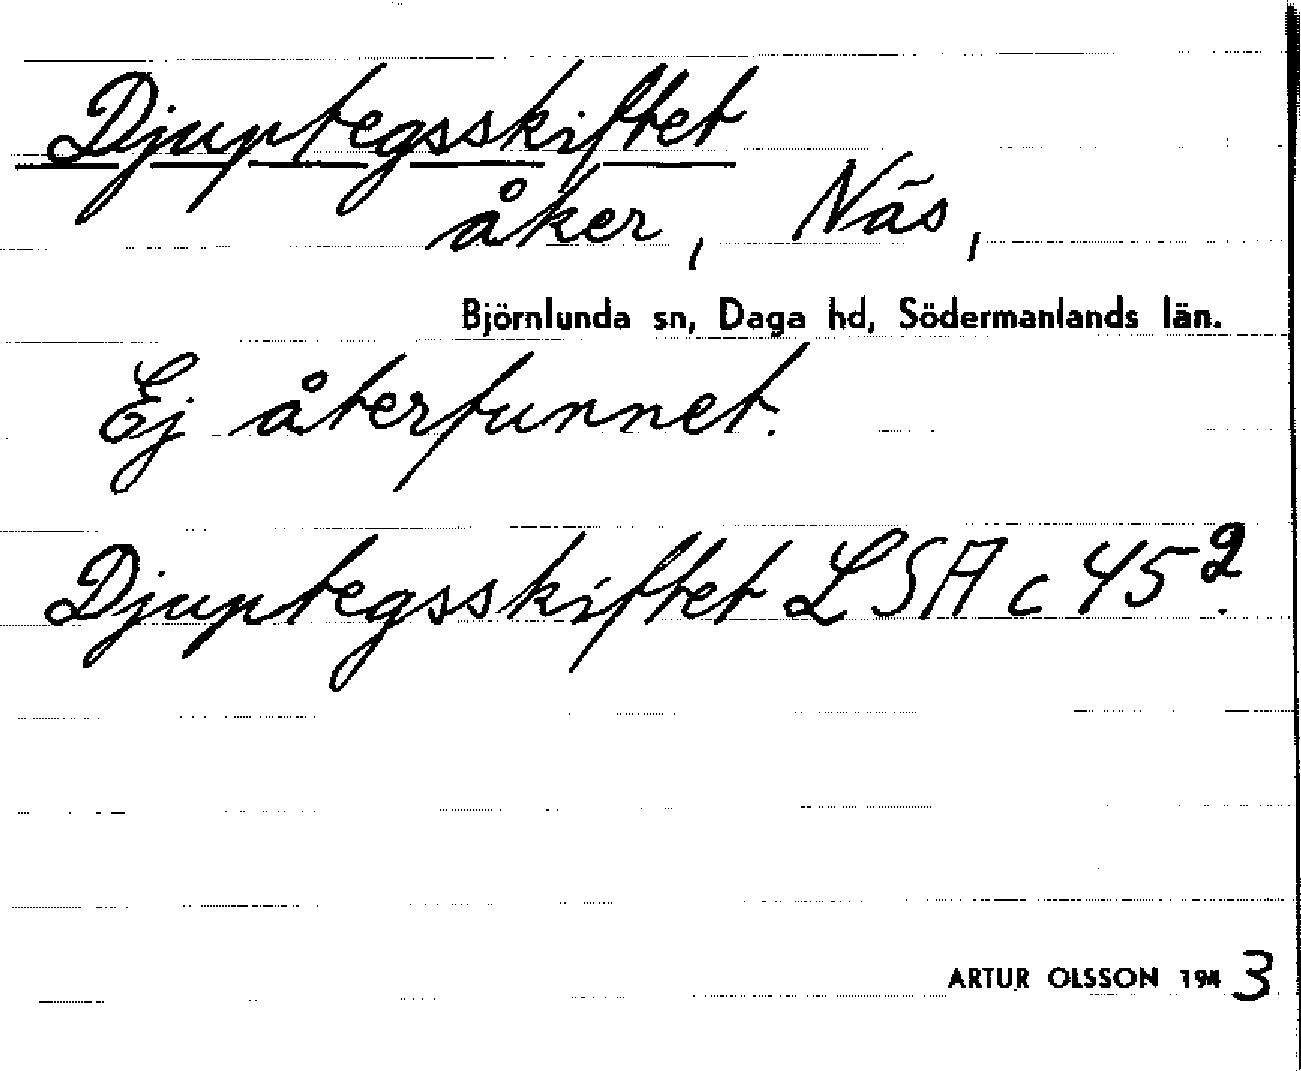 Djuptegsskiftet
åker, Näs,
Björnlunda sn, Daga hd, Södermanlands län.
Ej återfunnet.
Djuptegsskiftet LSA c 45².
ARTUR OLSSON 1943